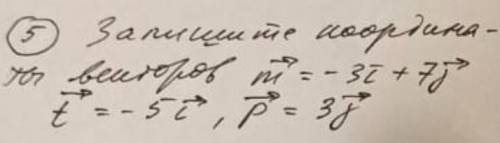 ⑤ Запишите координа-
ты векторов m⃗ = -3i⃗ + 7j⃗
t⃗ = -5i⃗, p⃗ = 3j⃗